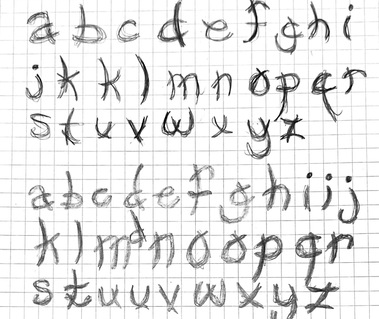 a b c d e f g h i
j k k l m n o p q r
s t u v w x y z
a b c d e f g h i i j
k l m d n o o p q r
s t u u v w x y z